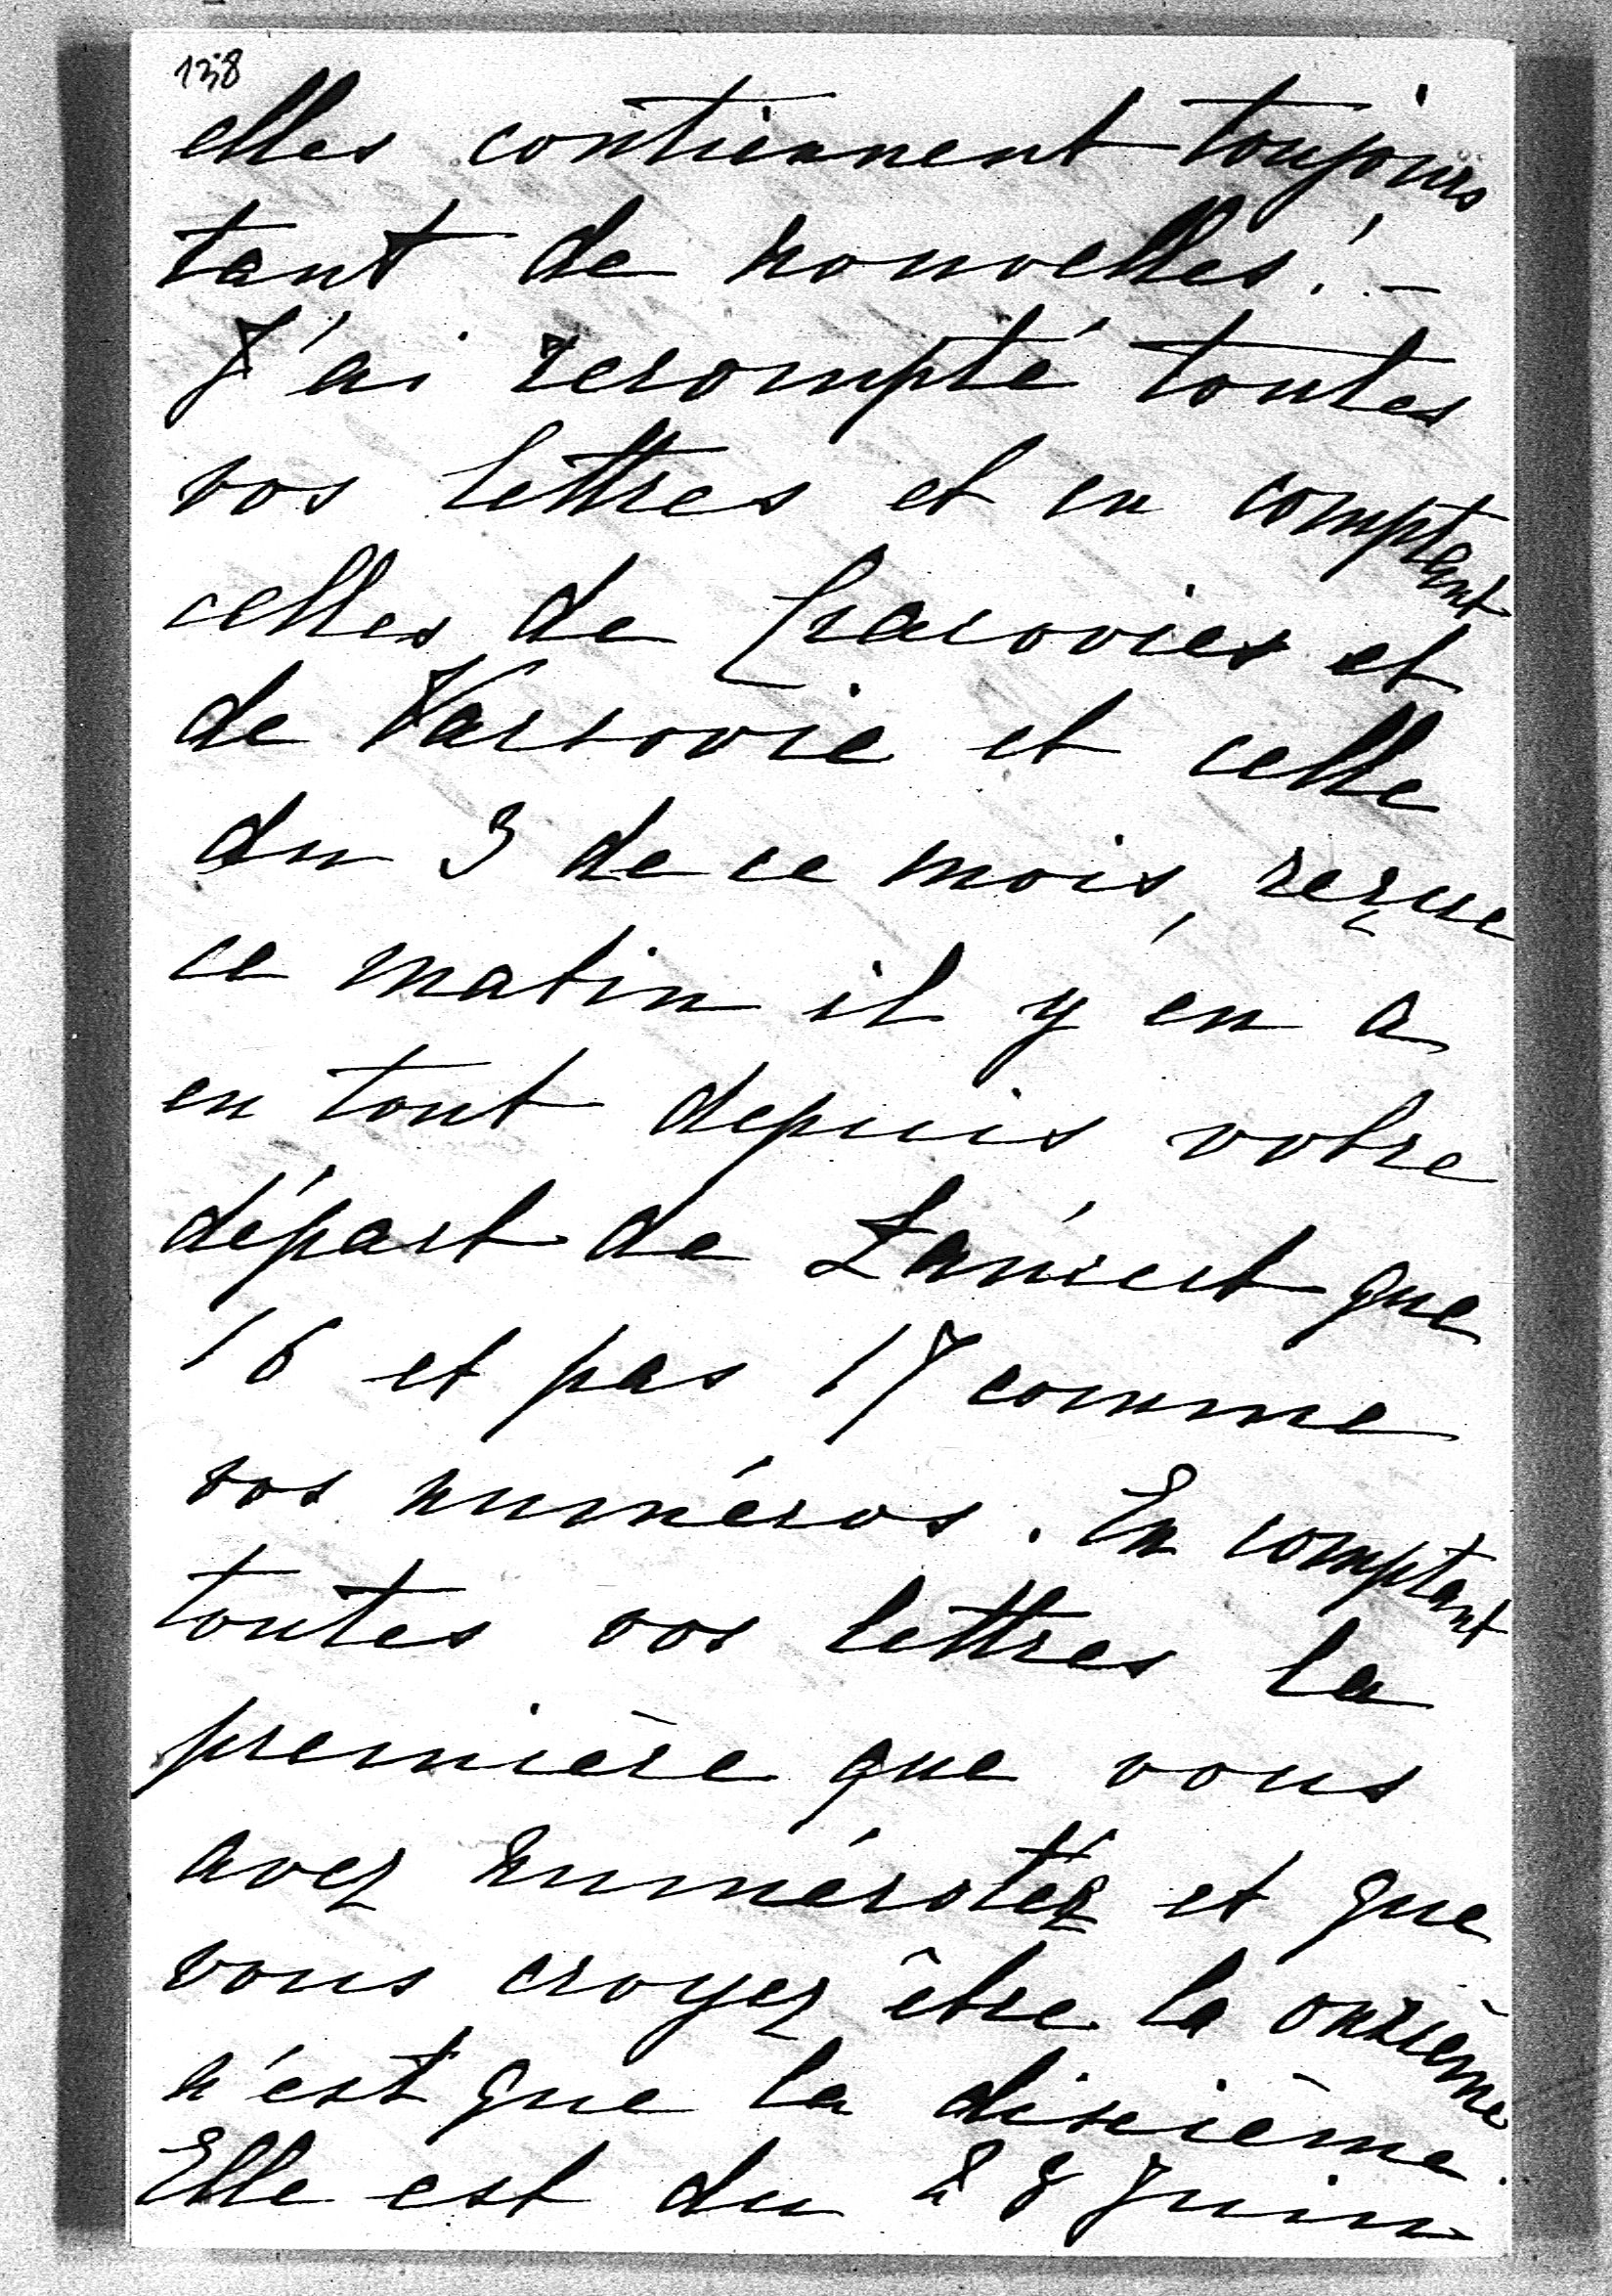 138
elles contiennent toujours
tant de nouvelles! –
J'ai recompté toutes
vos lettres et en comptant
celles de Cracovies et
de Varsovie et celle
du 3 de ce mois, reçue
ce matin il y en a
en tout depuis votre
départ de Łańcut que
16 et pas 17 comme
vos numéros. En comptant
toutes vos lettres la
première que vous
avez numérotéz et que
vous croyez être la onzième
n'est que la discième.
Elle est du 28 Juin